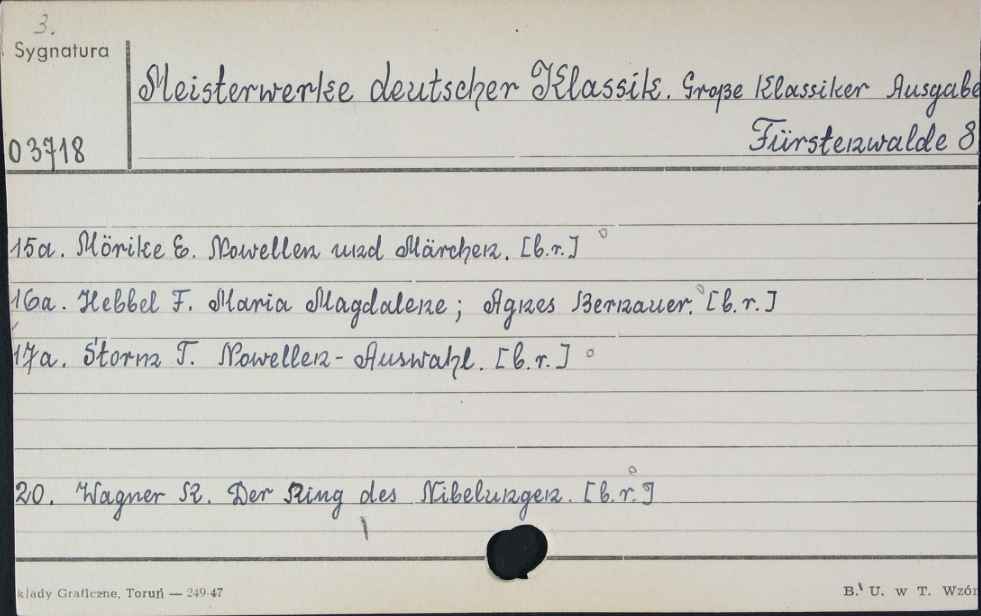 3.
Sygnatura
Meisterwerke deutscher Klassik. Große Klassiker Ausgabe
Fürstenwalde 8
03718
15a. Mörike E. Nowellen und Märchen. [b.r.]
16a. Hebbel F. Maria Magdalene; Agnes Bernauer. [b.r.]
17a. Storm T. Nowellen-Auswahl. [b.r.]
20. Wagner R. Der Ring des Nibelungen. [b.r.]
kłady Graficzne, Toruń — 249-47
B. U. w T. Wzór